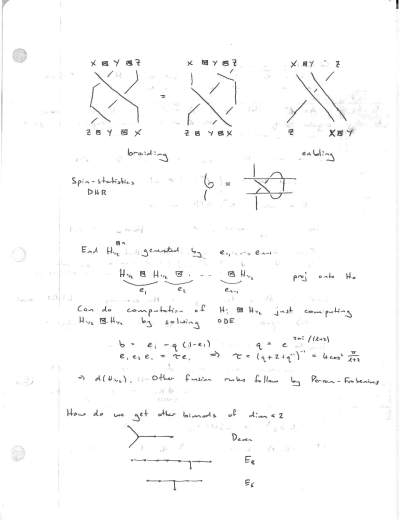 X ⊠ Y ⊠ Z X ⊠ Y ⊠ Z X ⊠ Y Z
=
Z ⊠ Y ⊠ X Z ⊠ Y ⊠ X Z X ⊠ Y
braiding cabling
Spin-statistics
DHR
=
End H½^⊠n generated by e₁, ... eₙ₋₁
H½ ⊠ H½ ⊠ ... ⊠ H½ proj onto H₀
e₁ e₂ eₙ₋₁
Can do computation of H₁ ⊠ H½ just computing
H½ ⊠ H½ by solving ODE
b = e₁ - q (1-e₁) q = e^2πi/(ℓ+2)
e₁ e₂ e₁ = τe₁ ⇒ τ = (q+2+q⁻¹)⁻¹ = 4cos² π/ℓ+2
⇒ d(H½). Other fusion rules follow by Perron-Frobenius
How do we get other bimods of dim < 2
Deven
E₈
E₆